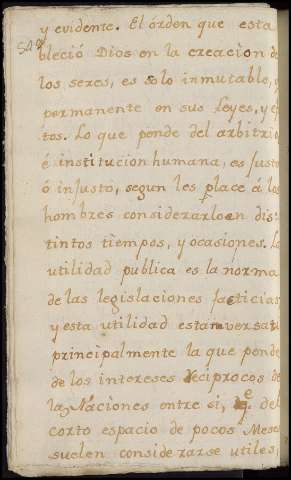 y evidente. El órden que esta
bleció Dios en la creacion de
los seres, es solo inmutable, y
permanente en sus Leyes, y
tos. Lo que pende del arbitrio
é institucion humana, es justo
ó injusto, segun les place á los
hombres considerarlo en dis-
tintos tiempos, y ocasiones. La
utilidad publica es la norma
de las legislaciones facticias
y esta utilidad
principalmente la que pende
de los intereses reciprocos de
las Naciones entre si, qe del
corto espacio de pocos Meses
suelen considerarse utiles,